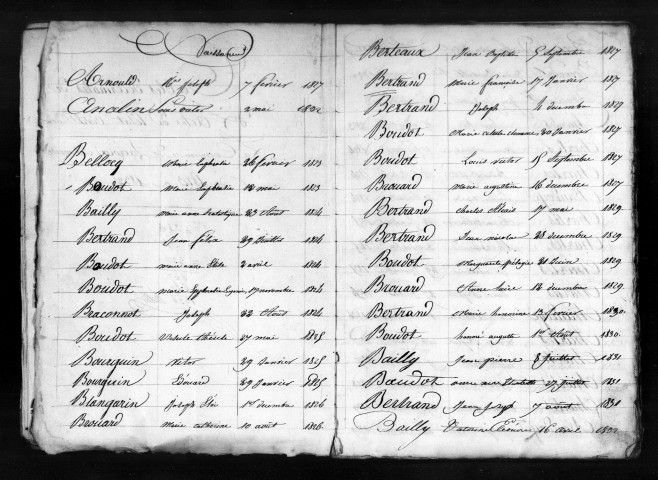 Naissances
Arnould Mie Joseph 7 février 1817
Analin Louis victor 2 mai 1822
Bellocq Marie Euphrasie 26 fevrier 1823
Boudot Marie Euphrasie 18 mai 1823
Bailly marie anne 23 Aout 1824
Bertrand Jean felix 29 Juillet 1824
Boudot marie anne 2 avril 1824
Boudot marie 17 novembre 1824
Braconnot Joseph 22 Aout 1824
Boudot Ursule thérèse 27 mai 1825
Bourquin victor 29 Janvier 1825
Bourquin Edouard 29 Janvier 1825
Blangarin Joseph Eloi 1er decembre 1826
Brouard Marie catherine 10 aout 1826
Berteaux Jean Baptiste 5 Septembre 1827
Bertrand Marie françoise 17 Janvier 1827
Bertrand Joseph 4 decembre 1827
Boudot Marie 20 Janvier 1827
Boudot Louis victor 15 Septembre 1827
Brouard marie augustine 16 decembre 1827
Bertrand charles 17 mai 1829
Bertrand Jean nicolas 28 decembre 1829
Boudot Marguerite pélagie 21 Juin 1829
Brouard 12 decembre 1829
Bertrand Marie honorine 13 fevrier 1830
Boudot honoré auguste 1er Aout 1830
Bailly Jean pierre 8 Juillet 1831
Boudot anne 27 juillet 1831
Bertrand Jean Joseph 7 aout 1831
Bailly 16 avril